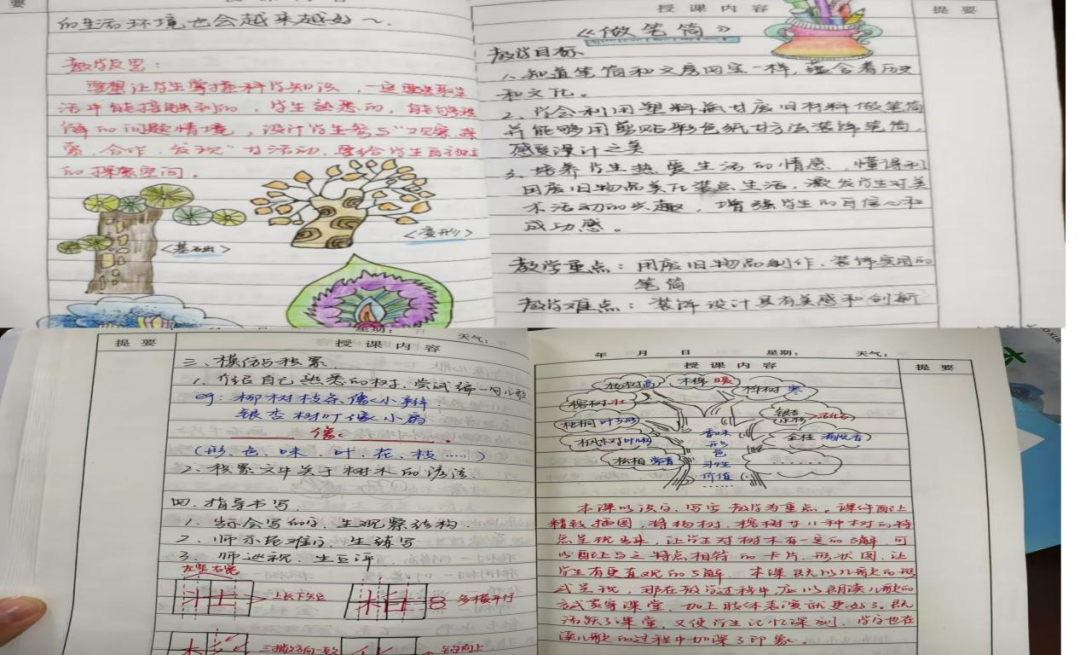 要
授 课 内 容
的生活环境也会越来越好~.
教学反思:
要想让学生掌握科学知识,一定要
活中能接触到的,学生熟悉的,
的问题情境,设计学生参与"观察、
合作、发现"等活动,要给学生
的探索空间。
<基础>
<变形>
授 课 内 容
提 要
《做笔筒》
教学目标
1、知道笔筒和文房四宝一样,蕴含着历史
和文化。
2、学会利用塑料瓶等废旧材料做笔筒
并能够用剪贴彩色纸等方法装饰笔筒,
感受设计之美
3、培养学生热爱生活的情感,懂得利
用废旧物品美化装点生活,激发学生对美
术活动的兴趣,增强学生的自信心和
成功感。
教学重点:用废旧物品制作、装饰实用的
笔筒
教学难点:装饰设计具有美感和创新
提 要
星期:
天气:
授 课 内 容
三、模仿与积累
1、介绍自己熟悉的树,尝试编一句儿歌
eg:柳树枝条像小辫
银杏树叶像小扇
像 。
(形、色、味、叶、花、枝……)
2、积累文中关于树木的
四、指导书写
1、生观察结构.
2、师示范难字,生练写
3、师巡视,生互评
左竖右捺
上长下短
多横平行
年 月 日 星期: 天气:
授 课 内 容
提 要
梧桐 叶
松柏
金桂
香味
形
色
习性
价值
……
本课以识字、写字教学为重点,课件配上
精致插图,将杨树、榕树等11种树的特
点呈现出来,让学生对树木有一定的了解,可
以配上与之特点相符的卡片、形状图,让
学生有更直观的了解.本课既然以儿歌的形
式呈现,那在教学过程中应以朗读儿歌的
方式贯穿课堂,加上肢体表演就更好了,既
活跃了课堂,又使学生记忆深刻,学生也在
读儿歌的过程中加深了印象。